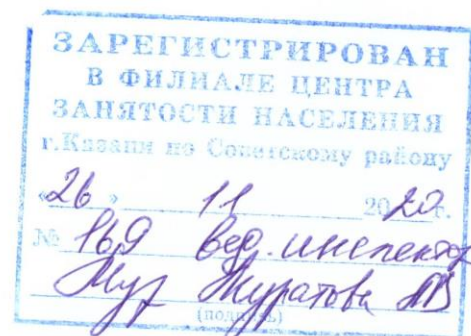 ЗАРЕГИСТРИРОВАН
В ФИЛИАЛЕ ЦЕНТРА
ЗАНЯТОСТИ НАСЕЛЕНИЯ
г.Казани по Советскому району
«26» 11 2020г.
№ 169 вед. инспектор
Муратова
(подпись)